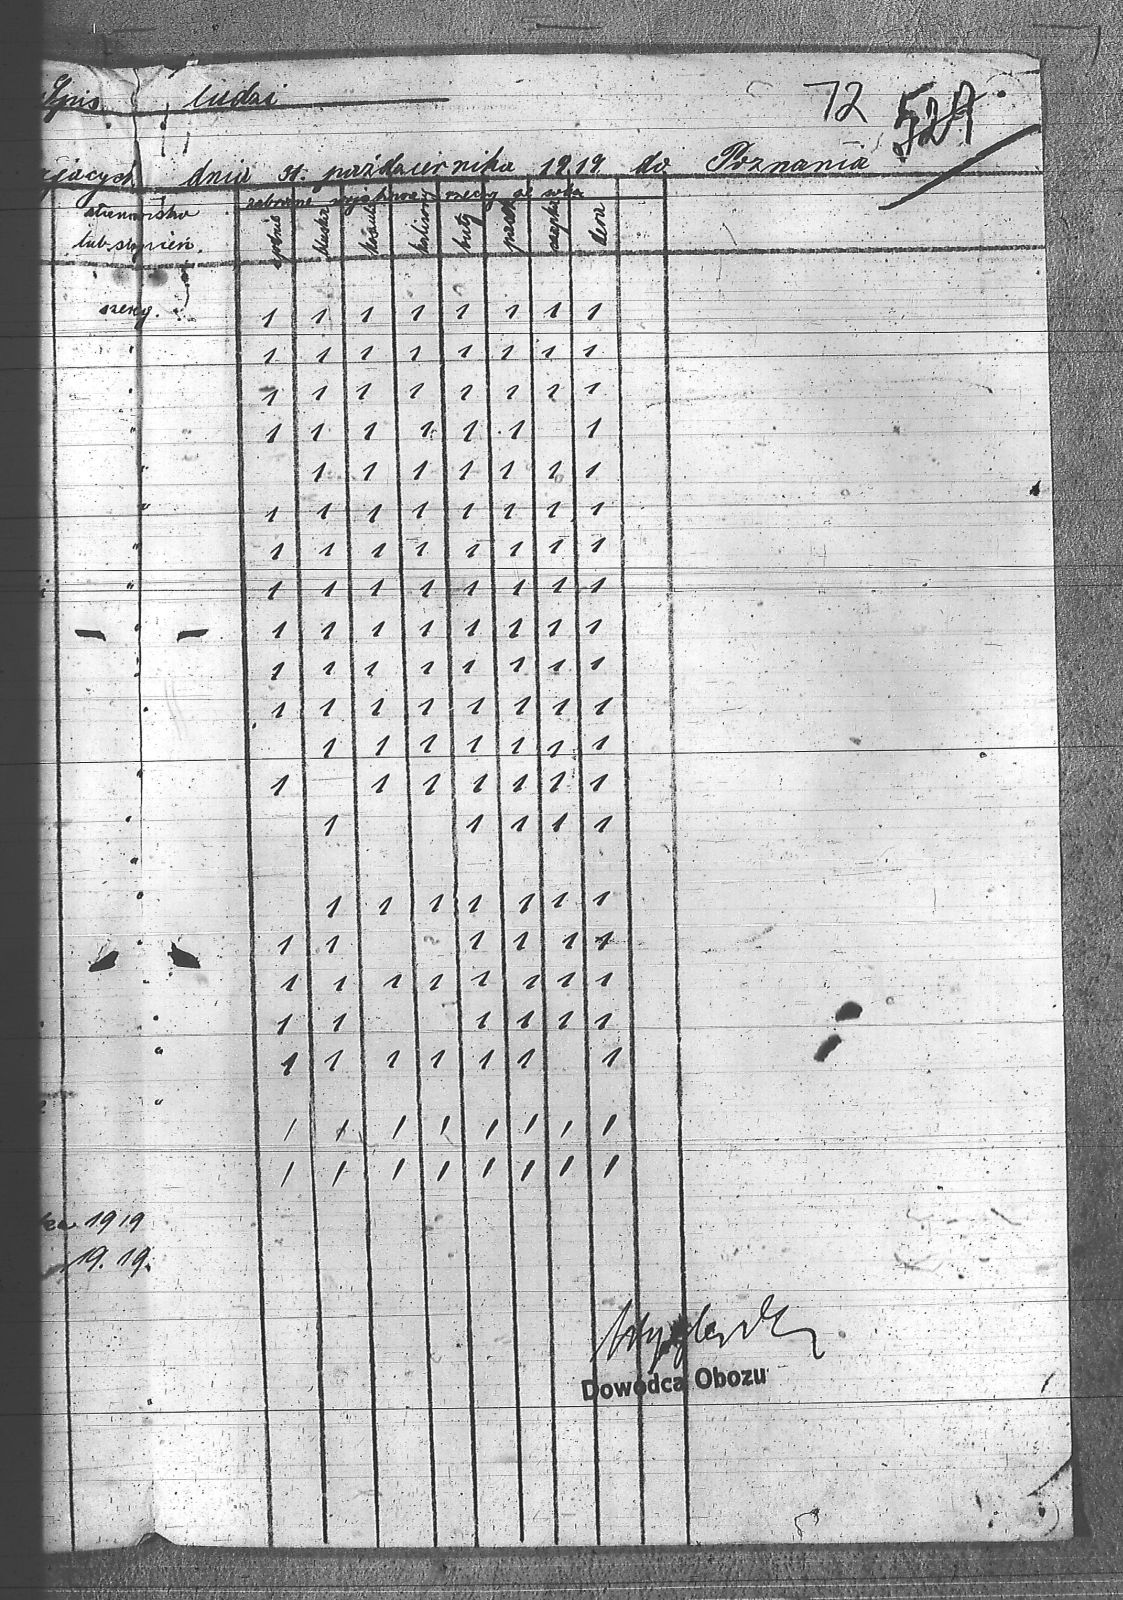 Spis ludzi 72 521
jących dnia 31. października 1919 do Poznania
stanowisko zabrane wojskowe rzeczy ze sobą
lub stopień. spodnie bluska koszule kalisony buty czapka
szereg. 1 1 1 1 1 1 1 1
" 1 1 1 1 1 1 1 1
" 1 1 1 1 1 1 1 1
" 1 1 1 1 1 1 1
" 1 1 1 1 1 1 1
" 1 1 1 1 1 1 1 1
" 1 1 1 1 1 1 1 1
" 1 1 1 1 1 1 1 1
" 1 1 1 1 1 1 1 1
" 1 1 1 1 1 1 1 1
" 1 1 1 1 1 1 1 1
1 1 1 1 1 1 1
" 1 1 1 1 1 1 1
" 1 1 1 1 1
"
" 1 1 1 1 1 1 1
" 1 1 1 1 1 1
" 1 1 1 1 1 1 1 1
" 1 1 1 1 1 1
" 1 1 1 1 1 1 1
"
1 1 1 1 1 1 1 1
1 1 1 1 1 1 1 1
ka 1919
19. 19.
Dowódca Obozu